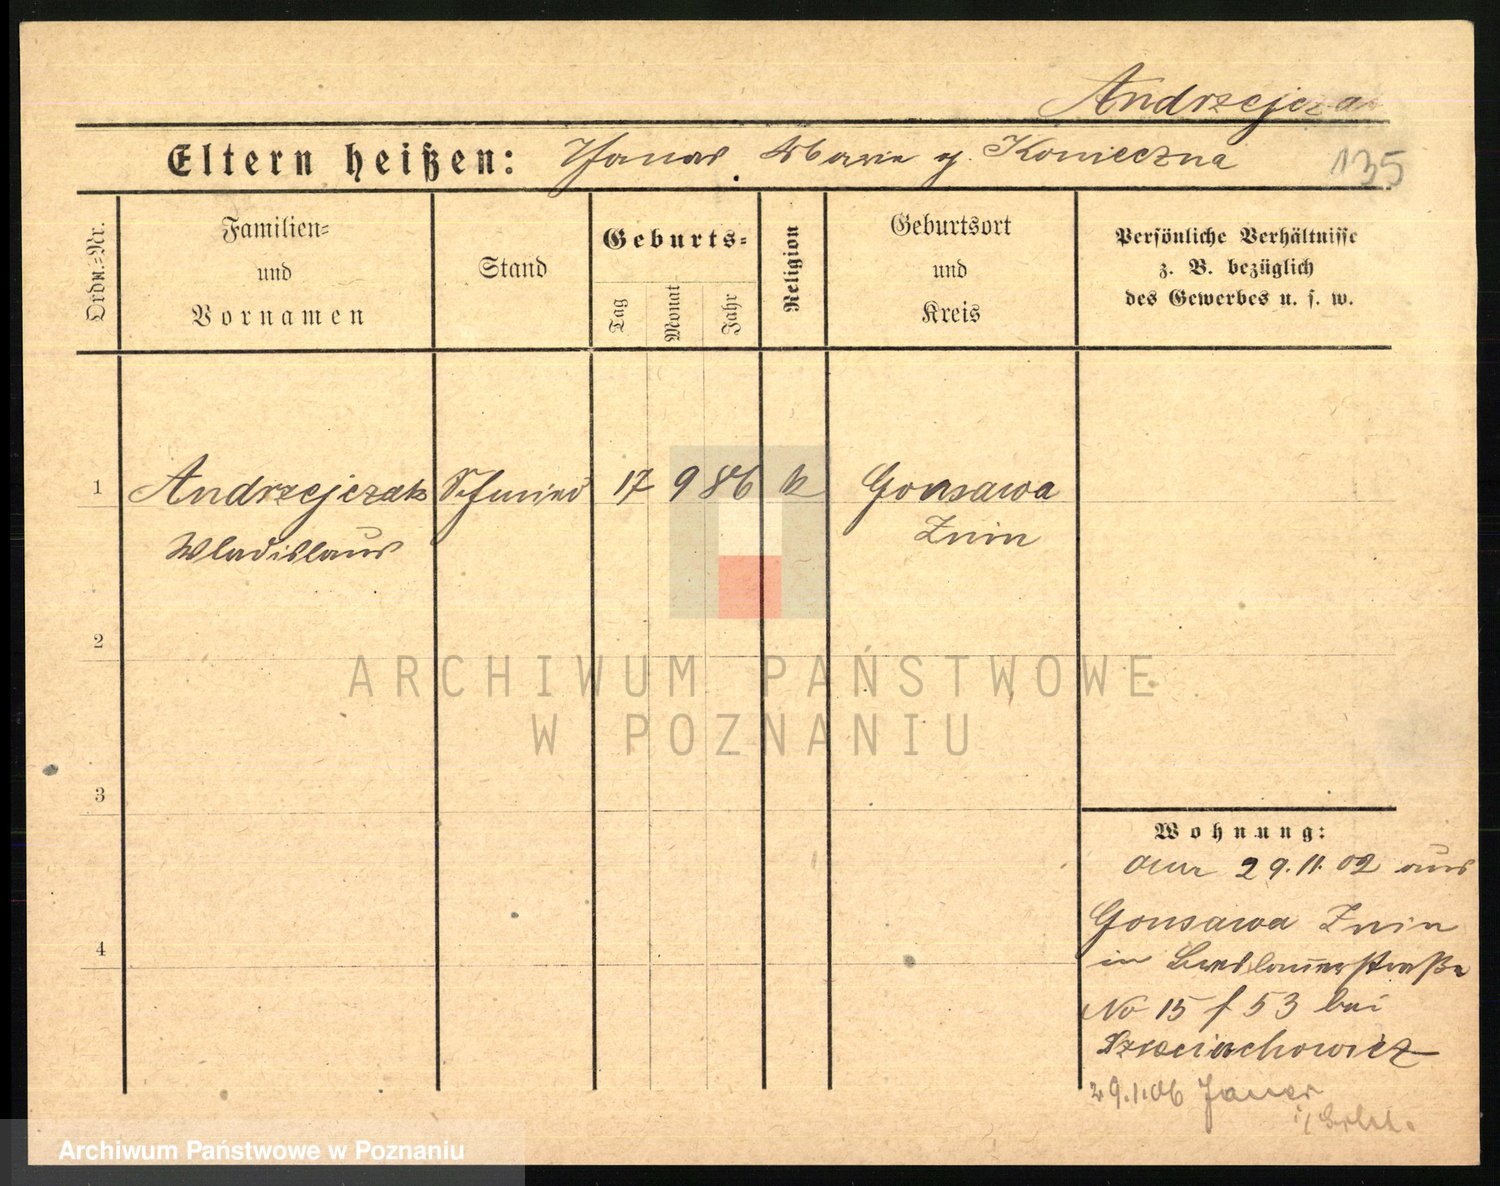 Andrzejcza
Eltern heißen: Marie g. Konieczna
135
Ordn.=Nr.
Familien=
und
Vornamen
Stand
Geburts=
Tag
Monat
Jahr
Religion
Geburtsort
und
Kreis
Persönliche Verhältnisse
z. B. bezüglich
des Gewerbes u. s. w.
1 Andrzejczak Schmied 17 9 86 k Gonsawa
Wladislaus Znin
2
3
4
Wohnung:
am 29.11.02 aus
Gonsawa Znin
in Breslauerstraße
No 15 / 53 bei
29.1.06 Jauer
ARCHIWUM PAŃSTWOWE
W POZNANIU
Archiwum Państwowe w Poznaniu